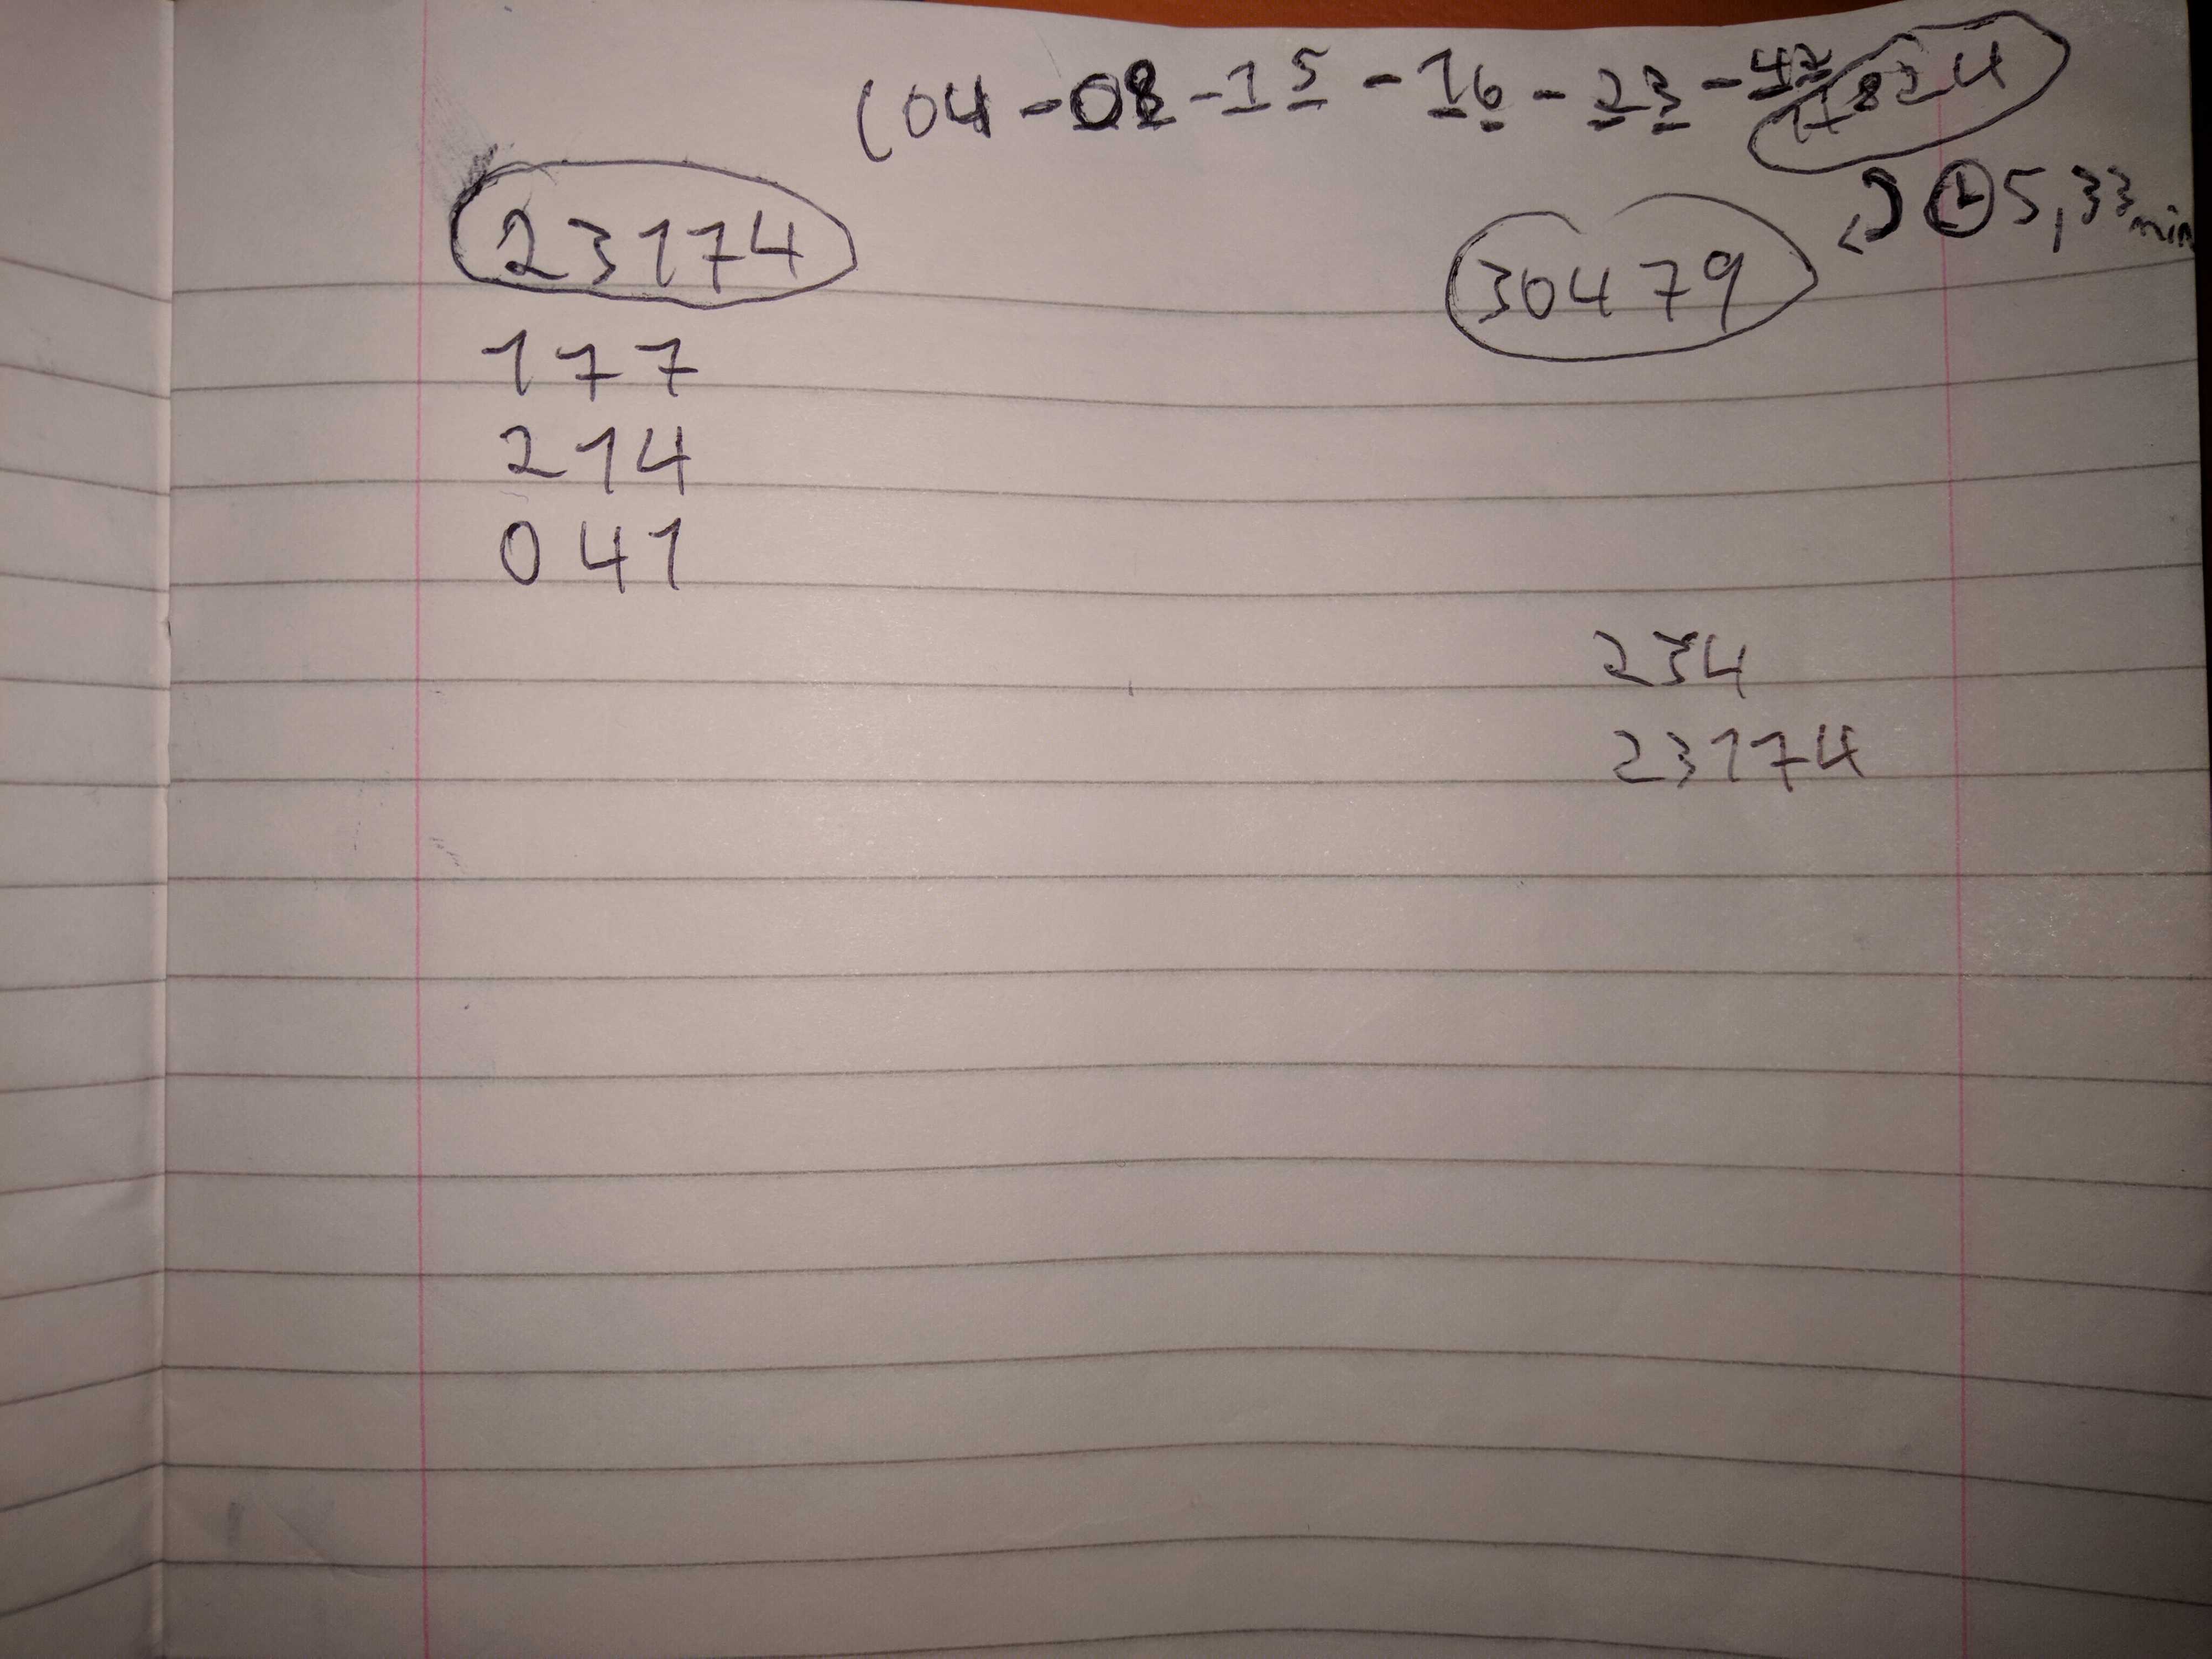 (04-08-15-16-23-42
17824
5,33 min
23174
30479
177
214
041
234
23174